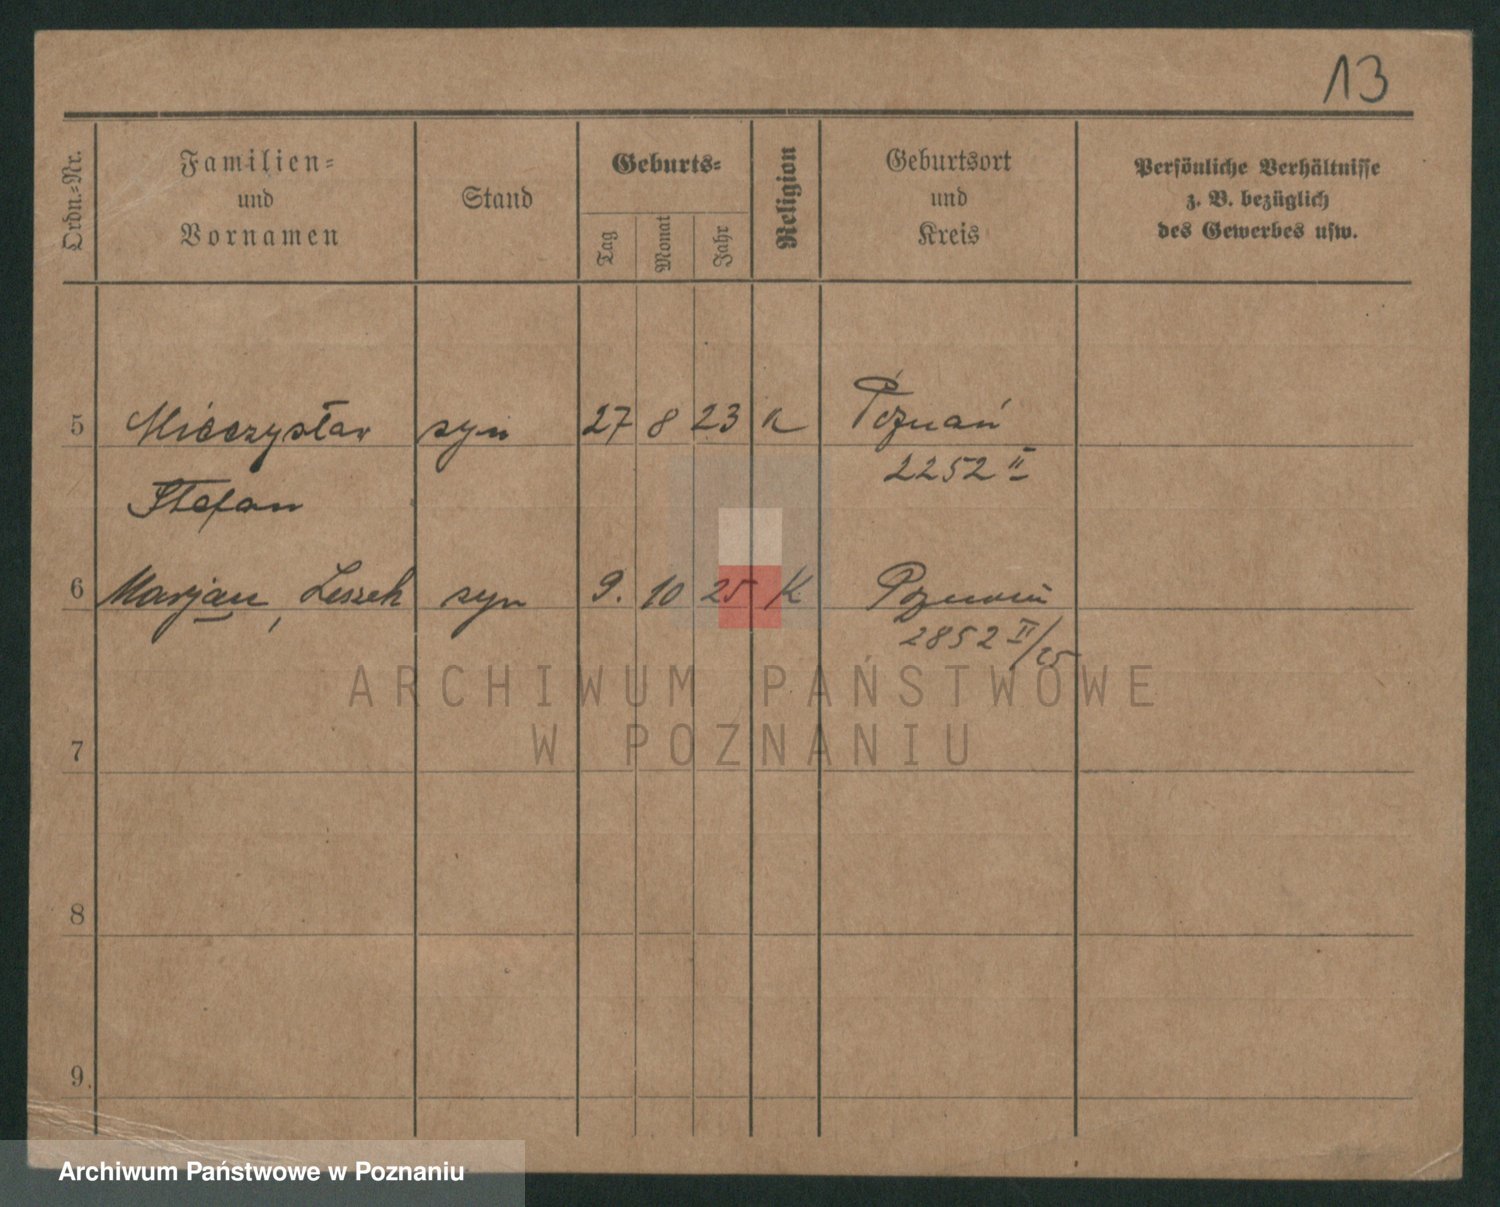 13
Ordn.-Nr.
Familien-
und
Vornamen
Stand
Geburts-
Tag
Monat
Jahr
Religion
Geburtsort
und
Kreis
Persönliche Verhältnisse
z. B. bezüglich
des Gewerbes usw.
5 Mieczysław syn 27 8 23 K Poznań
2252 II
Stefan
6 Marjan, Leszek syn 9. 10 25 K Poznań
2852 II/25
ARCHIWUM PAŃSTWOWE
W POZNANIU
7
8
9.
Archiwum Państwowe w Poznaniu